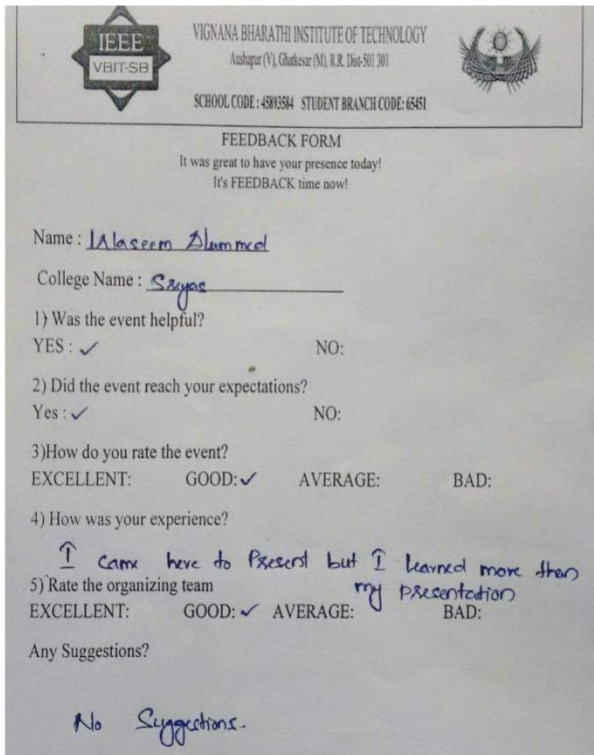 IEEE
VBIT-SB
VIGNANA BHARATHI INSTITUTE OF TECHNOLOGY
Aushapur (V), Ghatkesar (M), R.R. Dist-501 301
SCHOOL CODE : 45893584 STUDENT BRANCH CODE: 65451
FEEDBACK FORM
It was great to have your presence today!
It's FEEDBACK time now!
Name : Waseem
College Name :
1) Was the event helpful?
YES : ✓ NO:
2) Did the event reach your expectations?
Yes : ✓ NO:
3)How do you rate the event?
EXCELLENT: GOOD:✓ AVERAGE: BAD:
4) How was your experience?
I came here to Present but I learned more than
my Presentation
5) Rate the organizing team
EXCELLENT: GOOD: ✓ AVERAGE: BAD:
Any Suggestions?
No Suggestions.